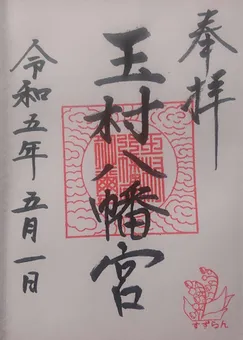 奉拝
玉村八幡宮
令和五年五月一日
すずらん